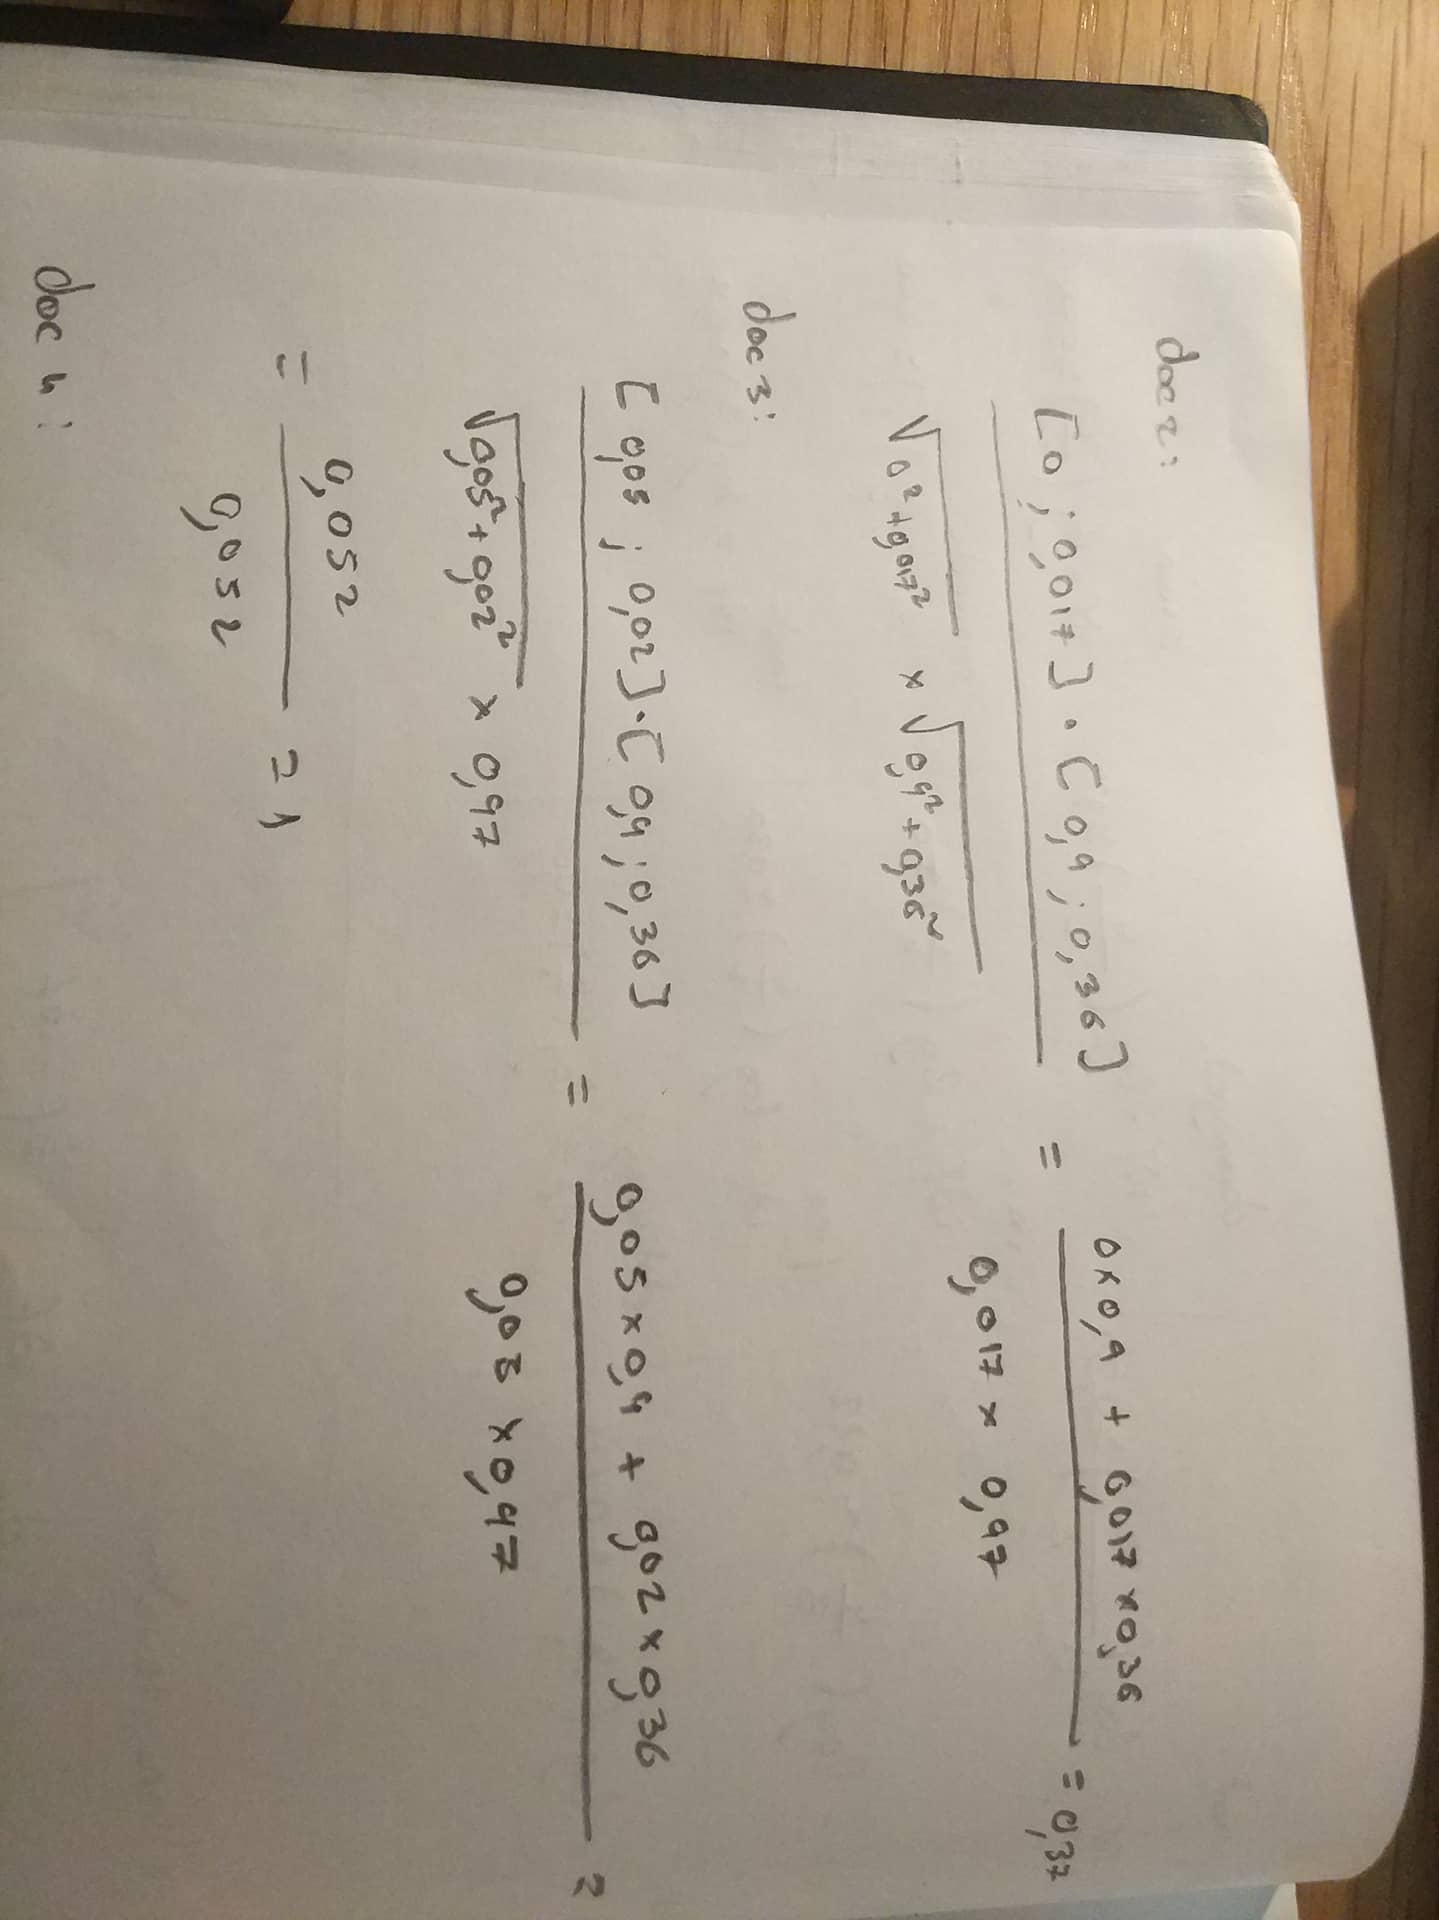 doc 2:
[0 ; 0,017] · [0,9 ; 0,36] / √0²+0,017² × √0,9²+0,36² = 0×0,9 + 0,017×0,36 / 0,017 × 0,97 = 0,37
doc 3:
[0,05 ; 0,02] · [0,9 ; 0,36] / √0,05²+0,02² × 0,97 = 0,05×0,9 + 0,02×0,36 / 0,05 ×0,97 =
= 0,052 / 0,052 = 1
doc 4: